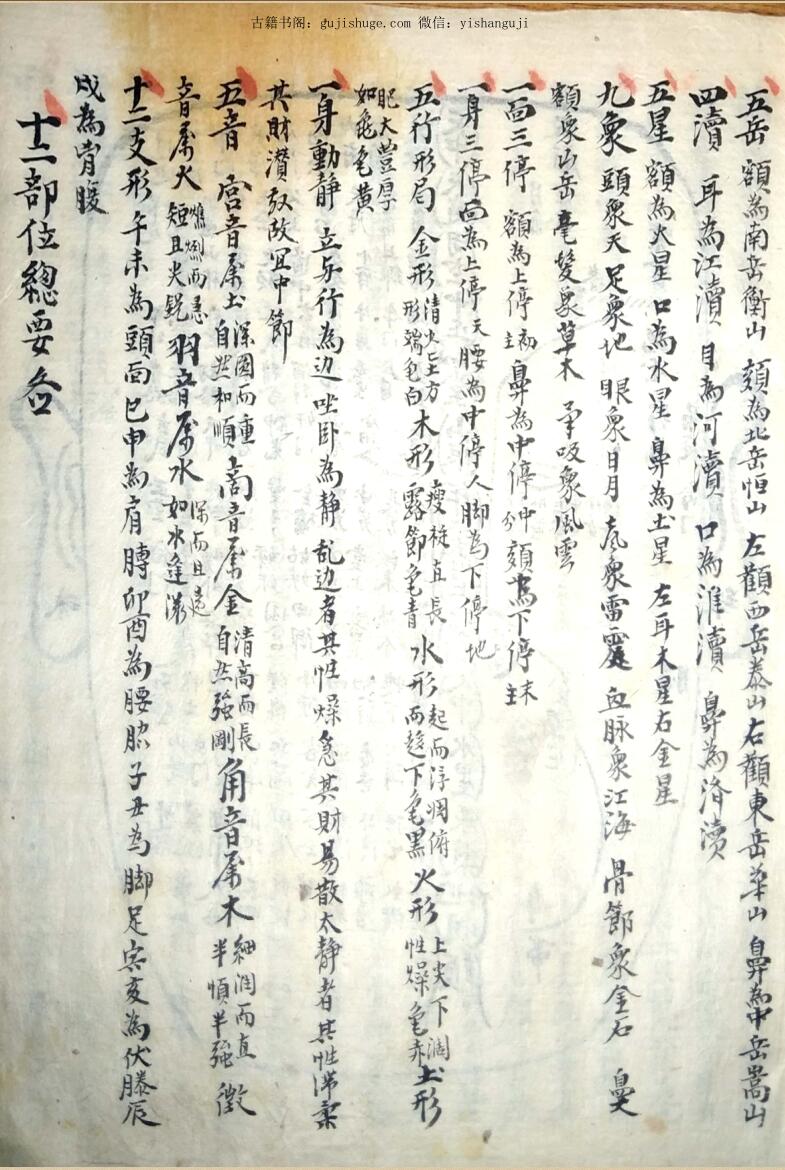 古籍书阁：gujishuge.com 微信：yishanguji
五岳 額為南岳衡山 頦為北岳恒山 左顴西岳泰山 右顴東岳華山 鼻為中岳嵩山
四瀆 耳為江瀆 目為河瀆 口為淮瀆 鼻為济瀆
五星 額為火星 口為水星 鼻為土星 左耳木星右金星
九象 頭象天 足象地 眼象日月 声象雷霆 血脉象江海 骨節象金石 鼻
額象山岳 毫髮象草木 呼吸象風雲
一面三停 額為上停 主初 鼻為中停 中分 頦為下停 主末
一身三停 面為上停天 腰為中停人 脚為下停地
五行形局 金形 清火上方 形端色白 木形 瘦挺直長 露節色青 水形 起而浮濶俯 而趍下色黑 火形 上尖下濶 性燥色赤 土形
肥大豊厚 如龜色黄
一身動靜 立与行為边 坐卧為静 乱边者其性燥急其財易散太静者其性滞棄
其財潜 故宜中節
五音 宫音屬土 深圆而重 自然和順 商音屬金 清高而長 自然強剛 角音屬木 細润而直 半慎半強 徵
音屬火 燋烈而急 短且尖銳 羽音屬水 深而且遠 如水逢激
十二支形 午未為頭面 巳申為肩膊 卯酉為腰脇 子丑為脚足 寅亥為伏膝 辰
戌為背腹
十二部位總要